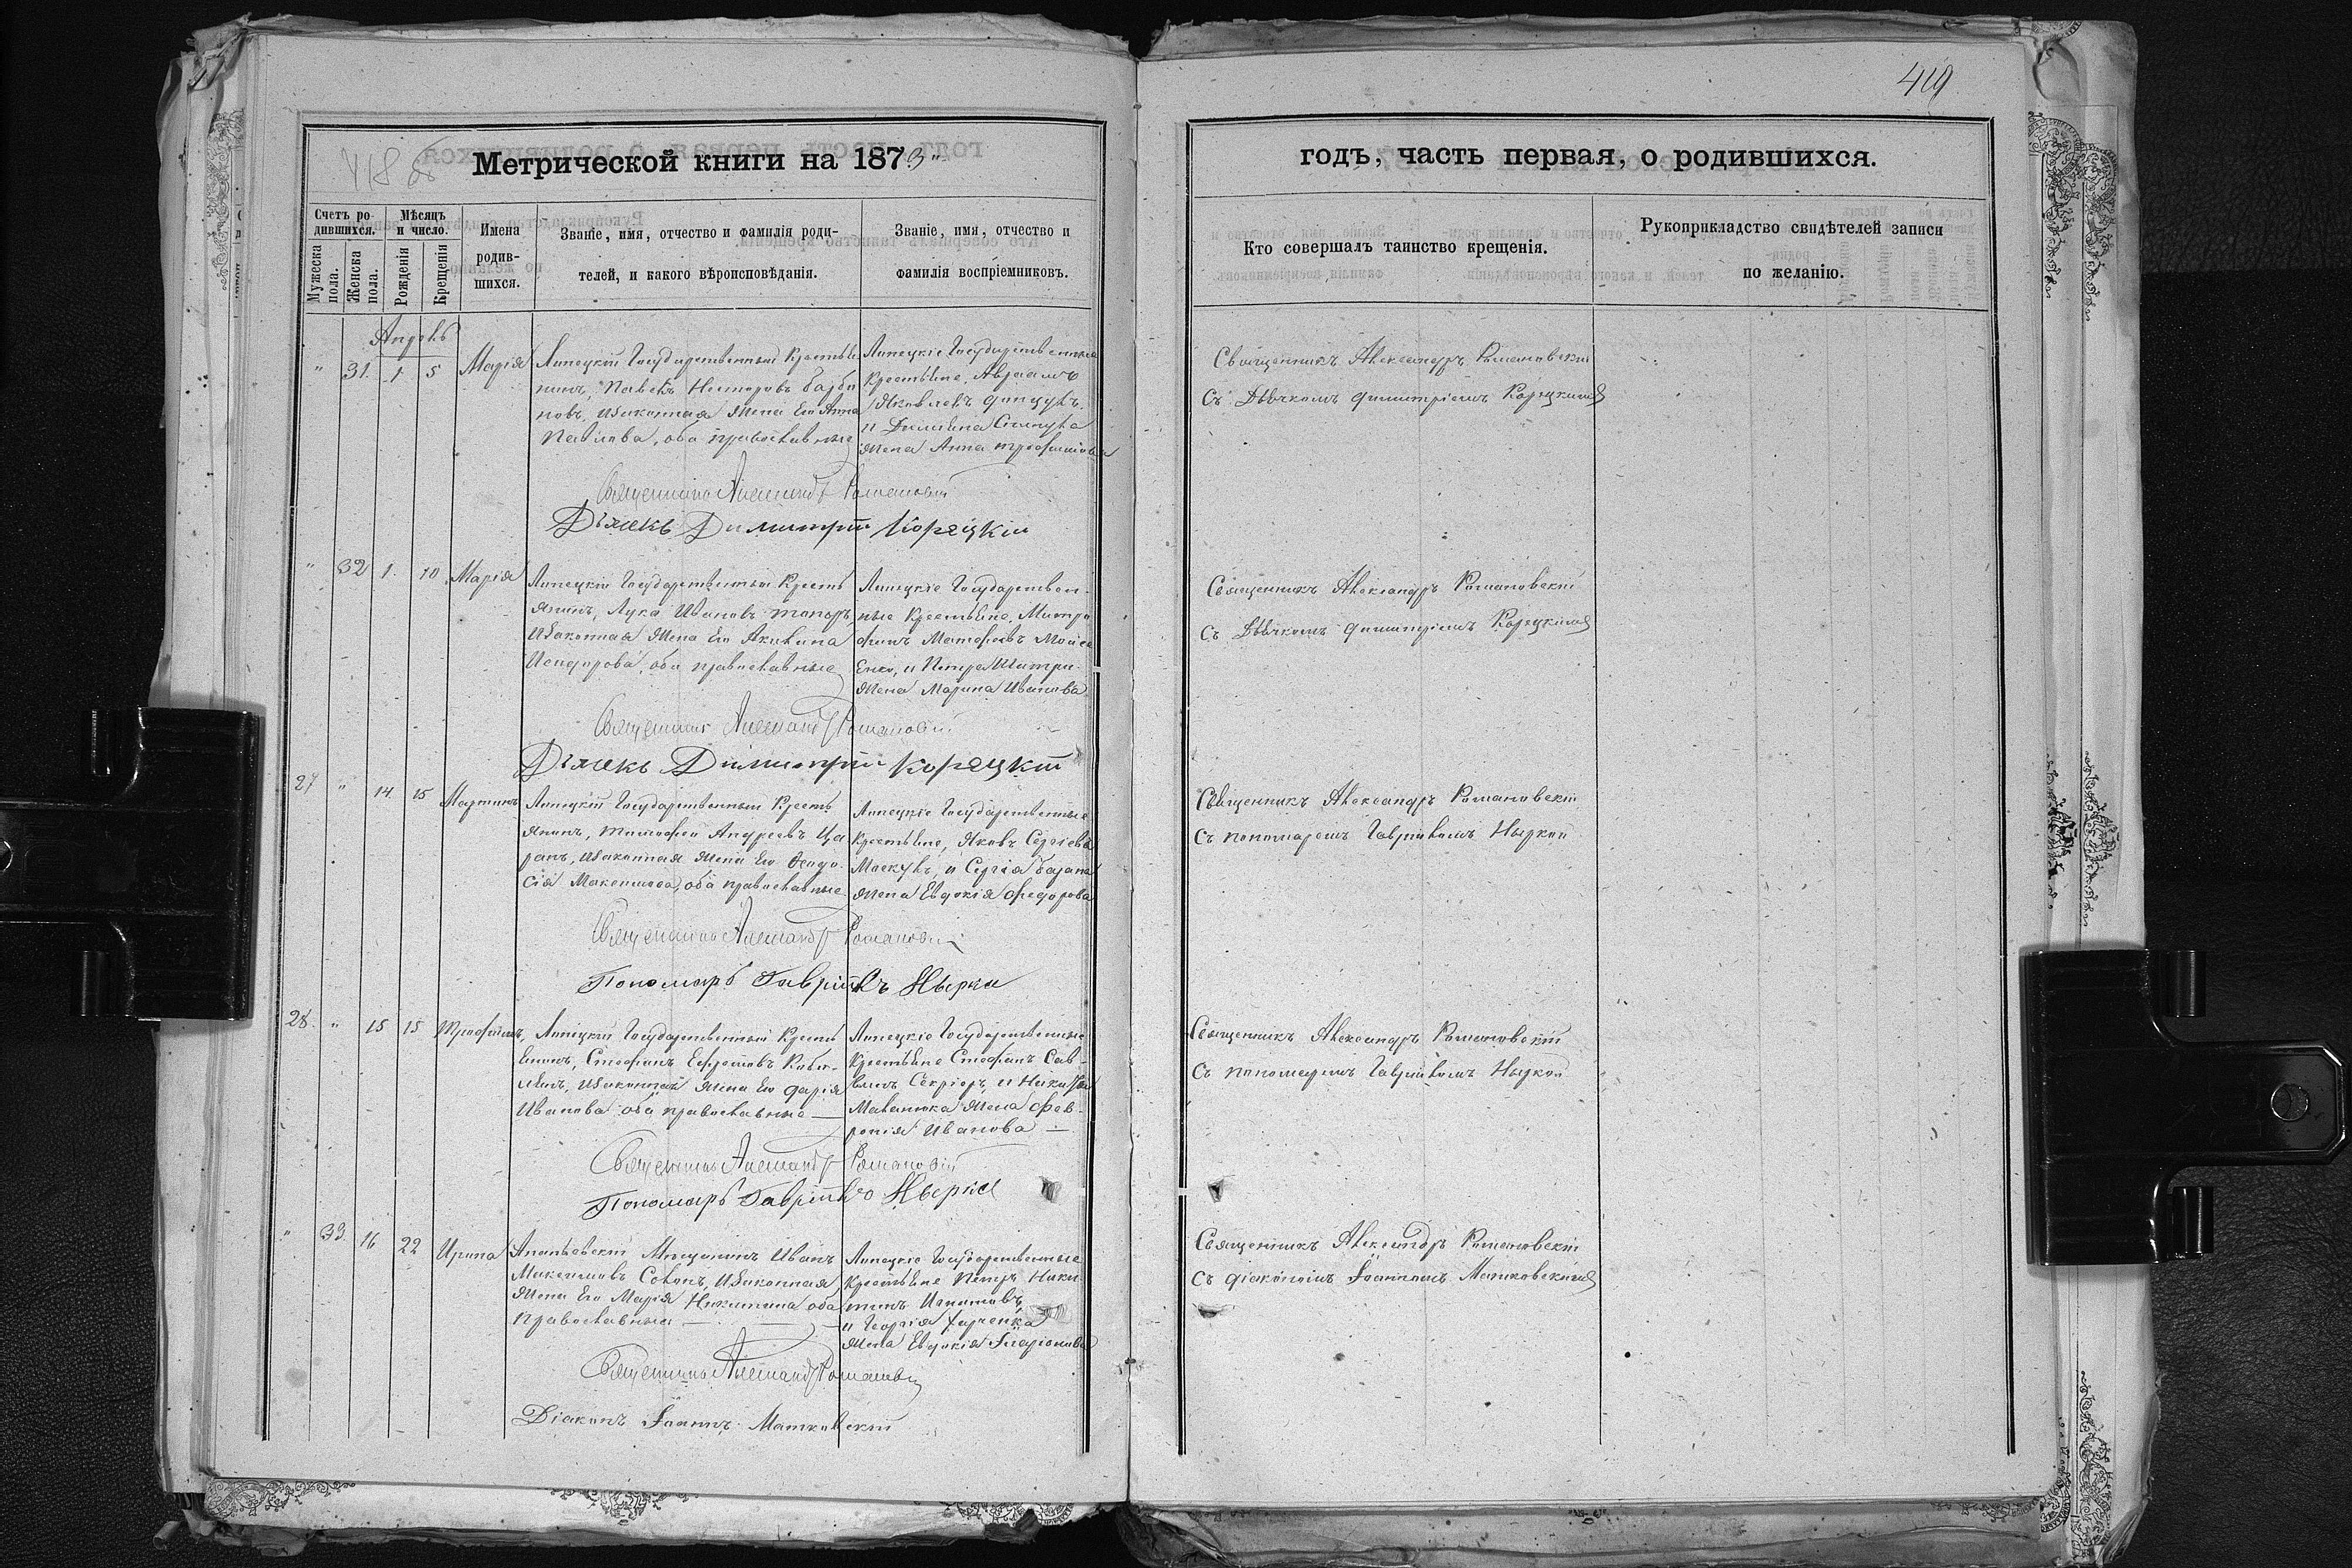 419
418 об
Метрической книги на 1873
годъ, часть первая, о родившихся.
Счетъ ро-
дившихся.
Мужеска
пола.
Женска
пола.
Мѣсяцъ
и число.
Рожденія
Крещенія
Имена
родив-
шихся.
Званіе, имя, отчество и фамилія роди-
телей, и какого вѣроисповѣданія.
Званіе, имя, отчество и
фамилія воспріемниковъ.
Кто совершалъ таинство крещенія.
Рукоприкладство свидѣтелей записи
по желанію.
Апрѣль
" 31. 1 5 Марія
Липецкій Государственный Крестья
нинъ, Павелъ Несторовъ
новъ, Изаконная Жена Его Анна
Павлова, оба православные
Липецкіе Государственные
Крестьяне, Авраамъ
Яковлевъ
и
Жена Анна Трофимова
Священникъ Александръ Романовскій
Съ Дьячкомъ Димитріемъ Корецкимъ
Священникъ Александръ Романовскій
Дьякъ Димитрій Корецкій
" 32 1. 10 Марія
Липецкій Государственный Кресть
янинъ, Лука Ивановъ Топоръ,
Изаконная Жена Его Акилина
Исидорова, оба православные
Липецкіе Государствен-
ные Крестьяне, Митро
фанъ Матфеевъ Мойсе
Енко, и Петра
Жена Марина Иванова
Священникъ Александръ Романовскій
Съ Дьячкомъ Димитріемъ Корецкимъ
Священникъ Александръ Романовскій
Дьякъ Димитрій Корецкій
27 " 14. 15 Мартинъ
Липецкій Государственный Кресть
янинъ, Тимофей Андреевъ Ца
ранъ, Изаконная Жена Его Феодо-
сія Максимова, оба православные
Липецкіе Государственные
Крестьяне, Яковъ Сергіевъ
и Сергія
Жена Евдокія Федорова
Священникъ Александръ Романовскій
Съ пономаремъ Гавріиломъ Ныркой
Священникъ Александръ Романовскій
Пономарь Гавріилъ Нырка
28. " 15 15 Трофимъ,
Липецкій Государственный Кресть
янинъ, Стефанъ Ефремовъ
Изаконная Жена Его Дарія
Иванова оба православные —
Липецкіе Государственные
Крестьяне Стефанъ Сав-
винъ Секріеръ, и
Жена Фев-
ронія Иванова —
Священникъ Александръ Романовскій
Съ пономаремъ Гавріиломъ Ныркой
Священникъ Александръ Романовскій
Пономарь Гавріилъ Нырка
" 33. 16 22 Ирина
Ананьевскій Мѣщанинъ Иванъ
Максимовъ Изаконная
Жена Его Марія Никитина оба
Православные —
Липецкіе Государственные
Крестьяне Петръ Ники
тинъ
и Георгія
Жена Евдокія Иларіонова
Священникъ Александръ Романовскій
Съ діакономъ Іоанномъ Матковскимъ
Священникъ Александръ Романовскій
Діаконъ Іоаннъ Матковскій